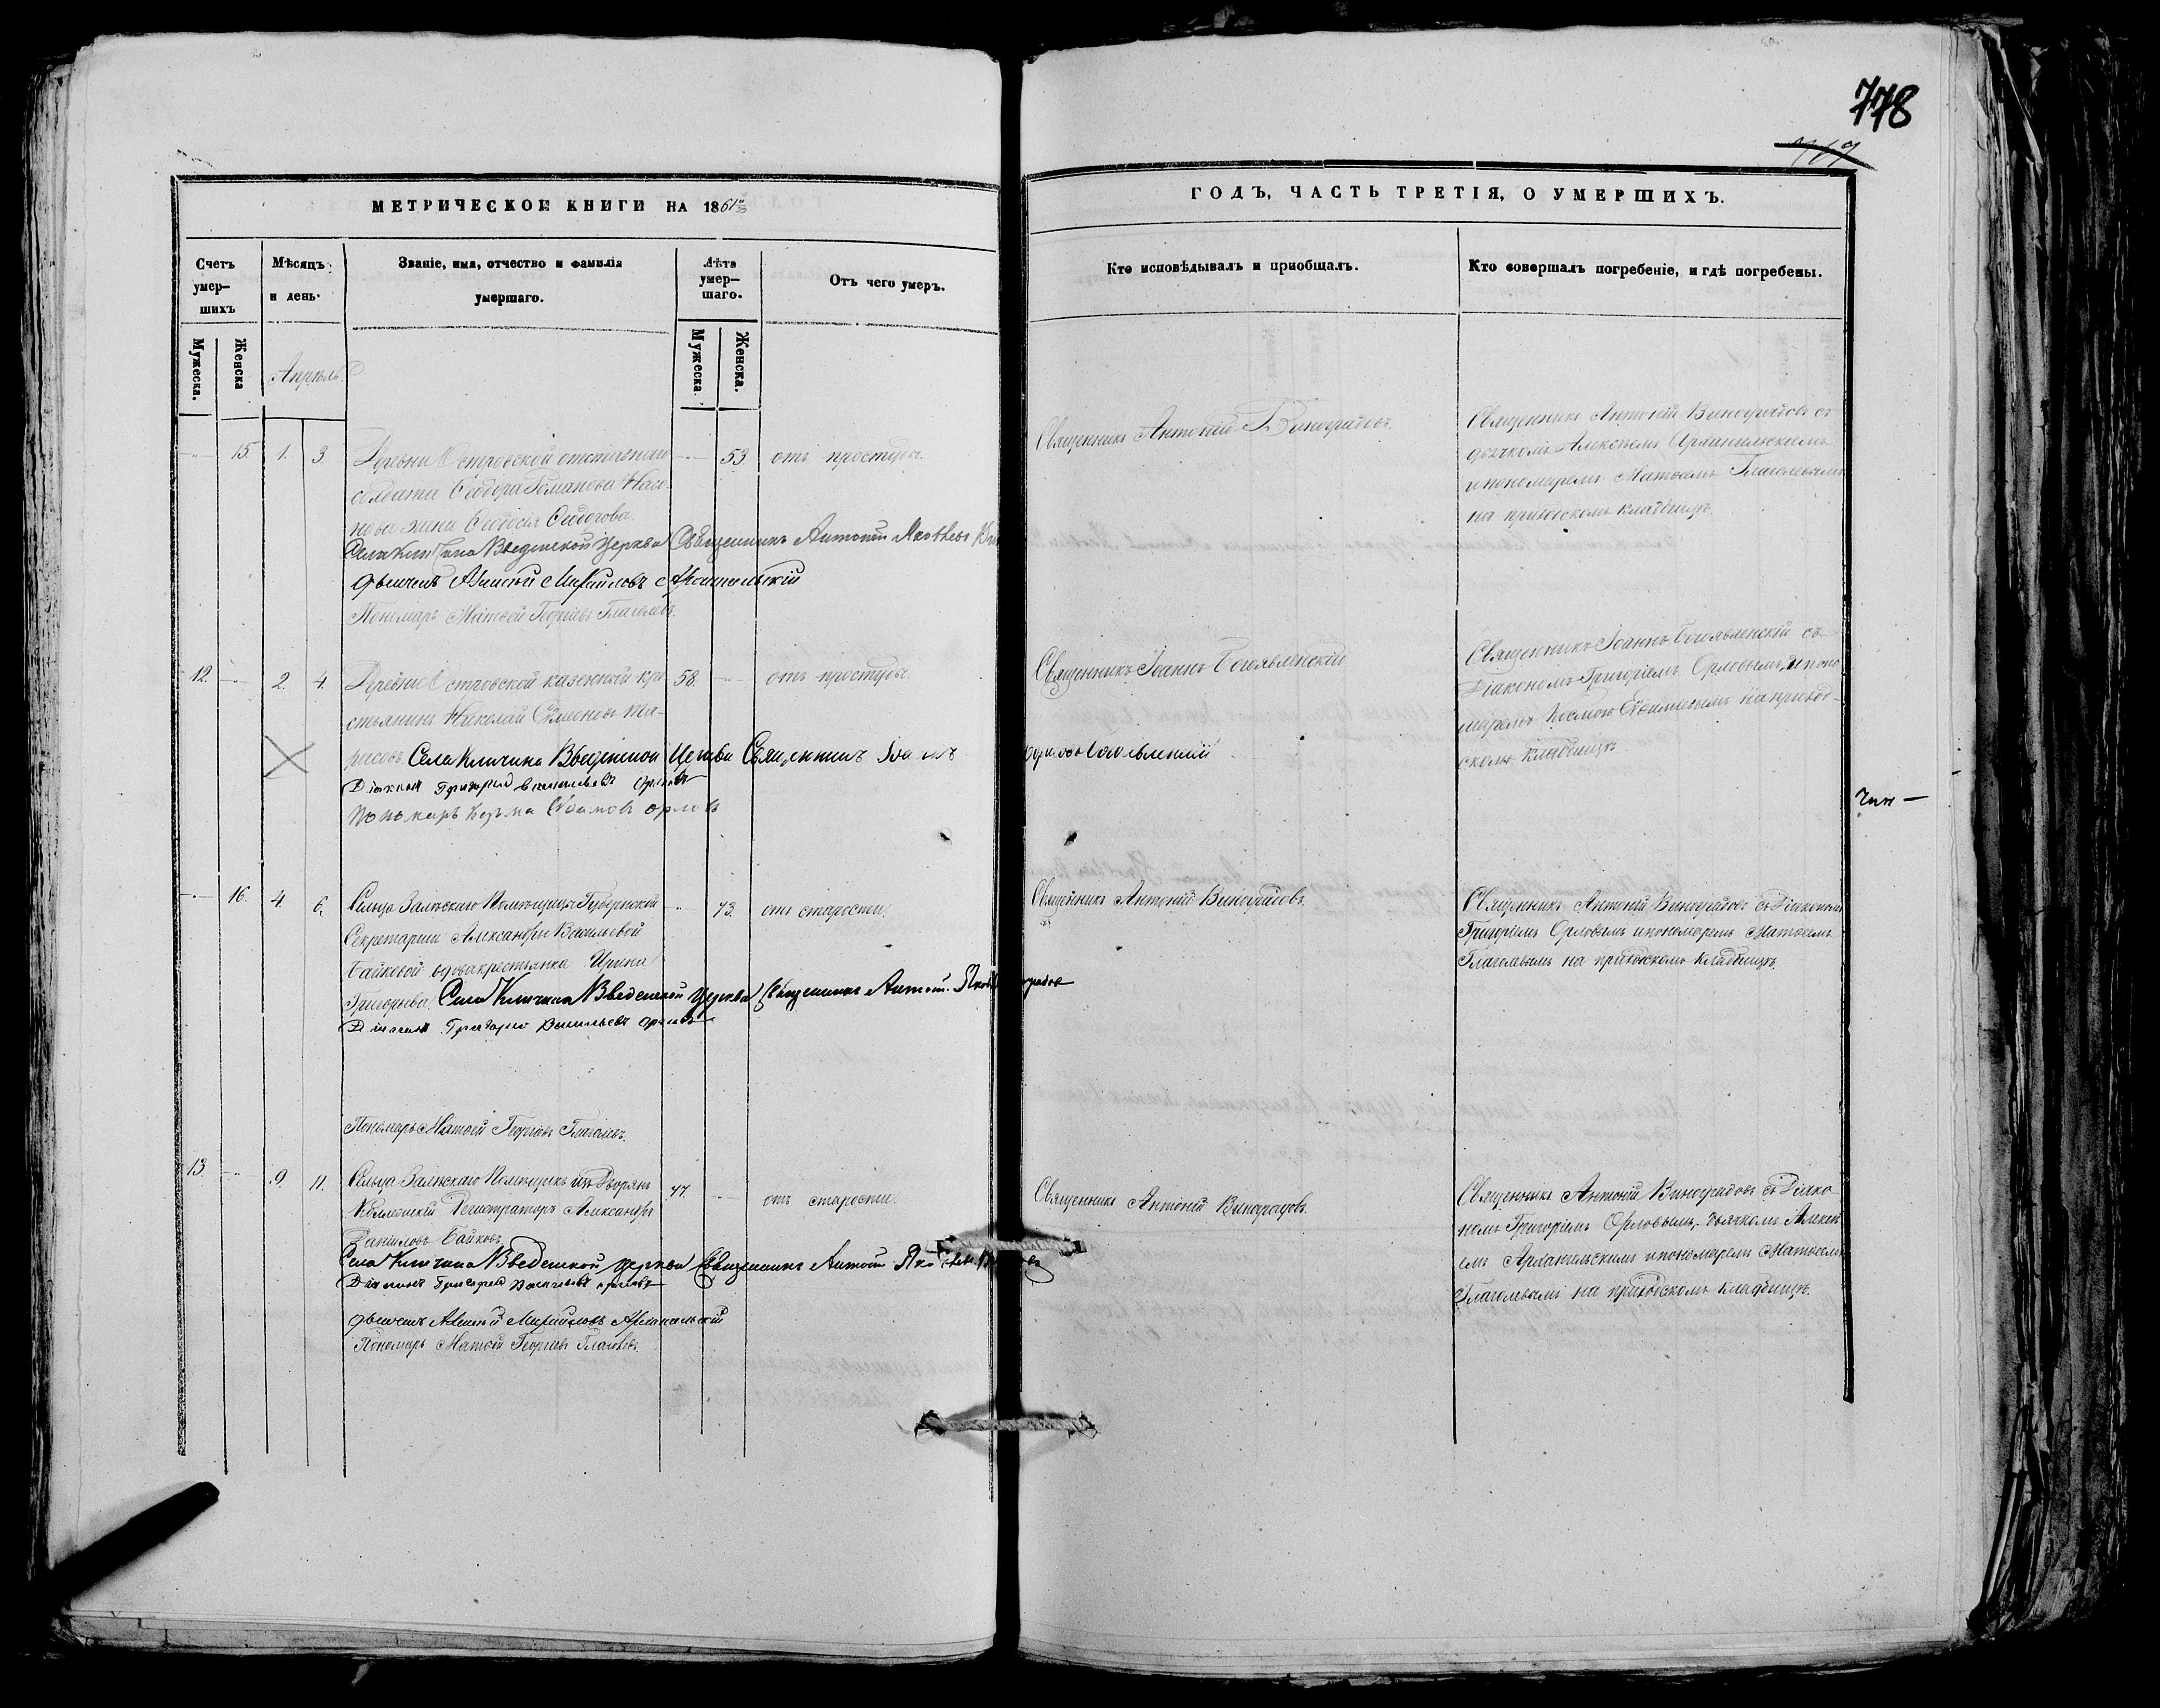 778
МЕТРИЧЕСКОЙ КНИГИ НА 1861й
ГОДЪ, ЧАСТЬ ТРЕТІЯ, О УМЕРШИХЪ.
Счетъ умер-шихъ
Мужеска.
Женска
Мѣсяцъ и день.
Званіе, имя, отчество и фамилія умершаго.
Лѣта умер-шаго.
Мужеска.
Женска.
Отъ чего умеръ.
Кто исповѣдывалъ и пріобщалъ.
Кто совершалъ погребеніе, и гдѣ погребены.
Апрѣль
15. 1. 3
Деревни Островской
солдата Ѳедора Романова
нова жена Ѳеодосія
53
отъ простуды.
Священникъ Антоній Виноградовъ.
Священникъ Антоній Виноградовъ съ
дьячкомъ Алексѣемъ Архангельскимъ
и пономаремъ Матѳеемъ Глаголевымъ
на приходскомъ кладбищѣ.
Села Введенской Церкви Священникъ Антоній
дьячекъ Алексѣй Михайловъ Архангельскій
Пономарь Матѳей Георгіевъ Глаголевъ.
12. 2. 4.
Деревни Островской казенный кре-
стьянинъ Николай Симеоновъ Та-
расовъ.
58.
отъ простуды.
Священникъ Іоаннъ Богоявленскій
Священникъ Іоаннъ Богоявленскій съ
Діакономъ Григоріемъ Орловымъ и поно-
маремъ Космою на приход-
скомъ кладбищѣ.
Села Введенской Церкви Священникъ Іоаннъ Богоявленскій
Діаконъ Григорій Васильевъ Орловъ
Пономарь Козьма Орловъ
16. 4. 6.
Сельца Залѣскаго Помѣщицы Губернской
Секретарши Александры Васильевой
Байковой вдова крестьянка Ирина
Григорьева.
73.
отъ старости.
Священникъ Антоній Виноградовъ.
Священникъ Антоній Виноградовъ съ Діакономъ
Григоріемъ Орловымъ и пономаремъ Матѳеемъ
Глаголевымъ на приходскомъ кладбищѣ.
Села Введенской Церкви Священникъ Антоній
Діаконъ Григорій Васильевъ Орловъ
Пономарь Матѳей Георгіевъ Глаголевъ.
13. 9. 11.
Сельца Залѣскаго Помѣщикъ изъ Дворянъ
Коллежскій Регистраторъ Александръ
Даніиловъ Байковъ.
77.
отъ старости.
Священникъ Антоній Виноградовъ.
Священникъ Антоній Виноградовъ съ Діако-
номъ Григоріемъ Орловымъ, дьячкомъ Алексѣ-
емъ Архангельскимъ и пономаремъ Матѳеемъ
Глаголевымъ на приходскомъ кладбищѣ.
Села Введенской Церкви Священникъ Антоній
Діаконъ Григорій Васильевъ Орловъ
дьячекъ Алексѣй Михайловъ Архангельскій
Пономарь Матѳей Георгіевъ Глаголевъ.